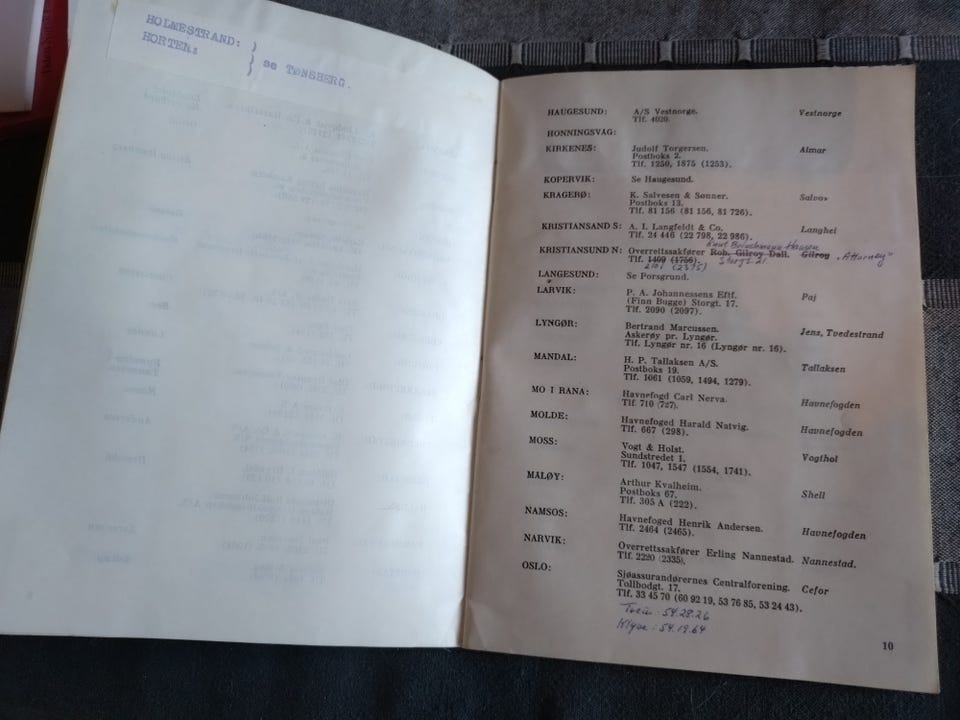 HOLMESTRAND: )
HORTEN: ) se TØNSBERG.
HAUGESUND: A/S Vestnorge. Vestnorge
Tlf. 4020.
HONNINGSVÅG:
KIRKENES: Judolf Torgersen. Almar
Postboks 2.
Tlf. 1250, 1875 (1253).
KOPERVIK: Se Haugesund.
KRAGERØ: K. Salvesen & Sønner. Salvos
Postboks 13.
Tlf. 81 156 (81 156, 81 726).
KRISTIANSAND S: A. I. Langfeldt & Co. Langhei
Tlf. 24 446 (22 798, 22 986).
Knut Hansen
KRISTIANSUND N: Overrettssakfører Rob. Gilroy Dall. Gilroy "Attorney"
Tlf. 1409 (1756). Storgt 21.
2101 (2375)
LANGESUND: Se Porsgrund.
LARVIK: P. A. Johannessens Eftf. Paj
(Finn Bugge) Storgt. 17.
Tlf. 2090 (2097).
LYNGØR: Bertrand Marcussen. Jens, Tvedestrand
Askerøy pr. Lyngør.
Tlf. Lyngør nr. 16 (Lyngør nr. 16).
MANDAL: H. P. Tallaksen A/S. Tallaksen
Postboks 19.
Tlf. 1061 (1059, 1494, 1279).
MO I RANA: Havnefogd Carl Nerva. Havnefogden
Tlf. 710 (727).
MOLDE: Havnefoged Harald Natvig. Havnefogden
Tlf. 667 (298).
MOSS: Vogt & Holst. Vogthol
Sundstredet 1.
Tlf. 1047, 1547 (1554, 1741).
MÅLØY: Arthur Kvalheim. Shell
Postboks 67.
Tlf. 305 A (222).
NAMSOS: Havnefoged Henrik Andersen. Havnefogden
Tlf. 2464 (2465).
NARVIK: Overrettssakfører Erling Nannestad. Nannestad.
Tlf. 2220 (2335).
OSLO: Sjøassurandørernes Centralforening. Cefor
Tollbodgt. 17.
Tlf. 33 45 70 (60 92 19, 53 76 85, 53 24 43).
54.28.26
54.19.64
10